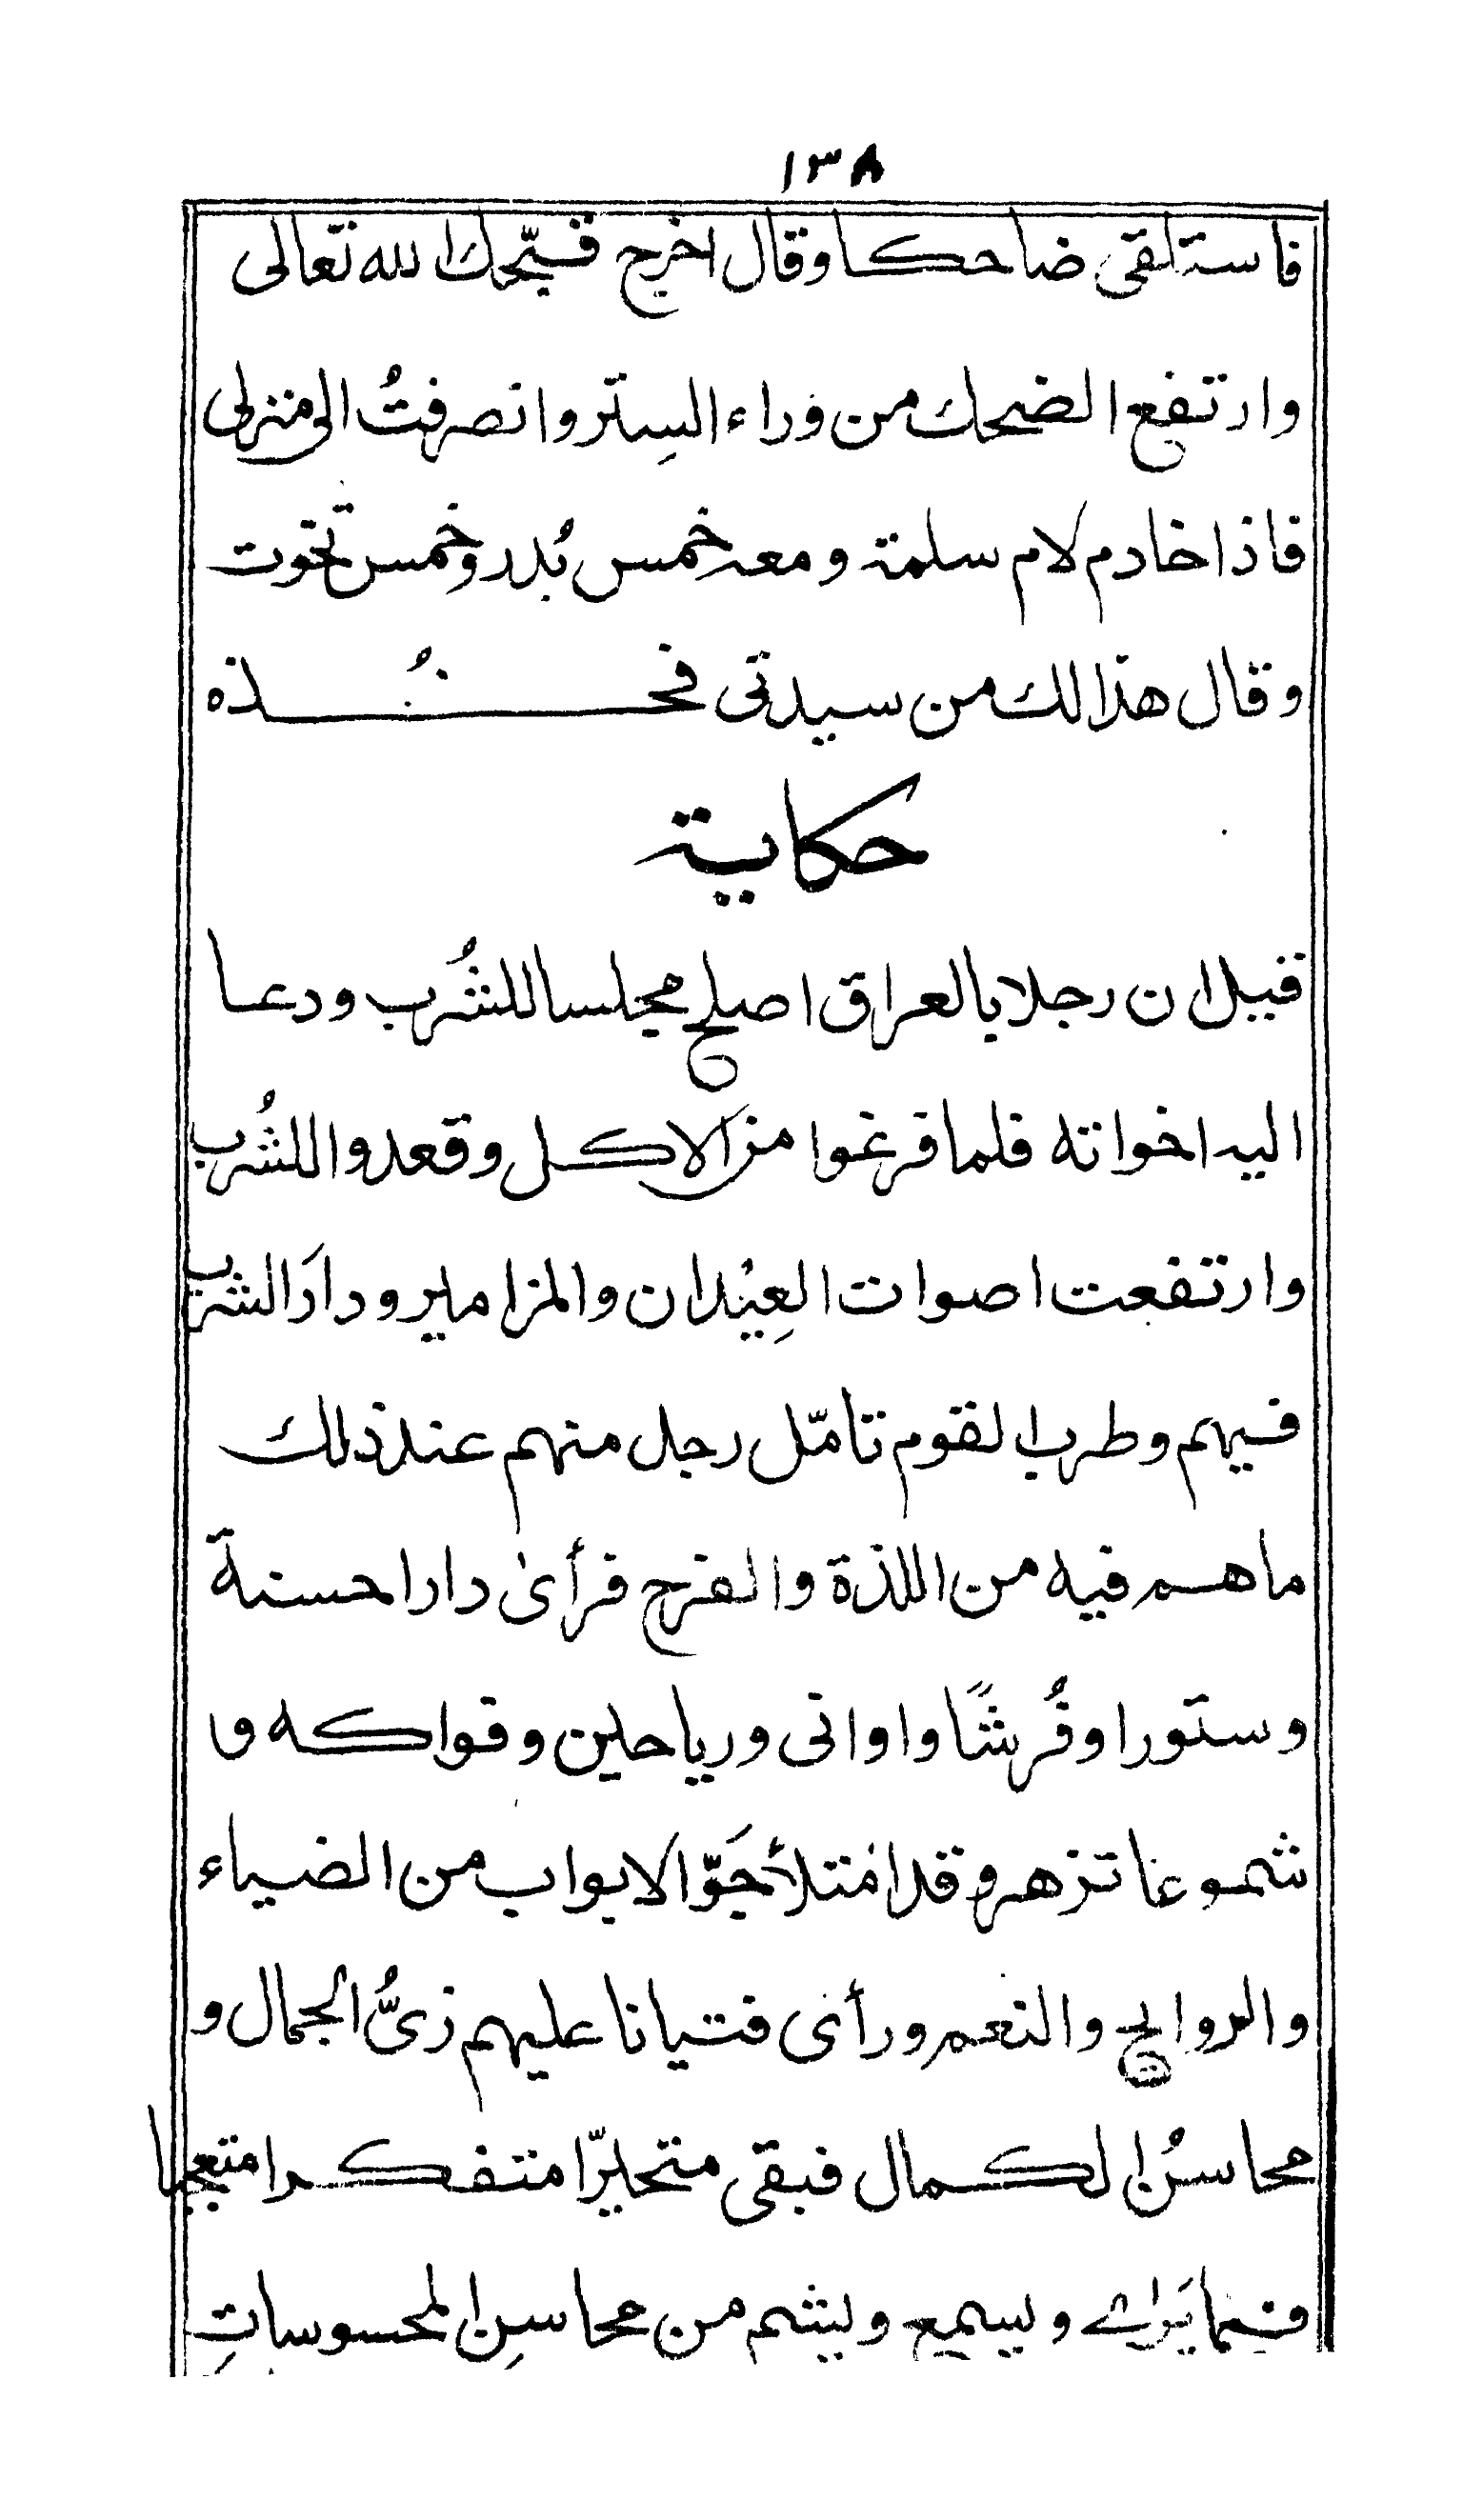 ١٣٨
فاستلقى ضاحكا وقال اخرج قبّحك الله تعالى
وارتفع الضحك من وراء السِتر وانصرفتُ الى منزلى
فاذا خادم لام سلمة ومعه خمس بُدر وخمس تخوت
وقال هذا لك من سيدتى فخُذه
حكاية
قيل ان رجلا بالعراق اصلح مجلسا للشُرب ودعا
اليه اخوانه فلما فرغوا من الاكل وقعدوا للشُرب
وارتفعت اصوات العِيْدان والمزامير ودارَ الشرب
فيهم وطرب القوم تامّل رجل منهم عند ذلك
ما هم فيه من اللذة والفرح فرأى دارا حسنة
وستورا وفُرشًا واوانى ورياحين وفواكه و
شموعا تزهر وقد امْتلأ جَوّ الابواب من الضياء
والروايح والنعم ورأى فتيانا عليهم زىُّ الجمال و
محاسنُ الكمال فبقى متحيرّا متفكرا متعجبا
فيما يَراے ويسمع ويشم من محاسنِ المحسوساتِ